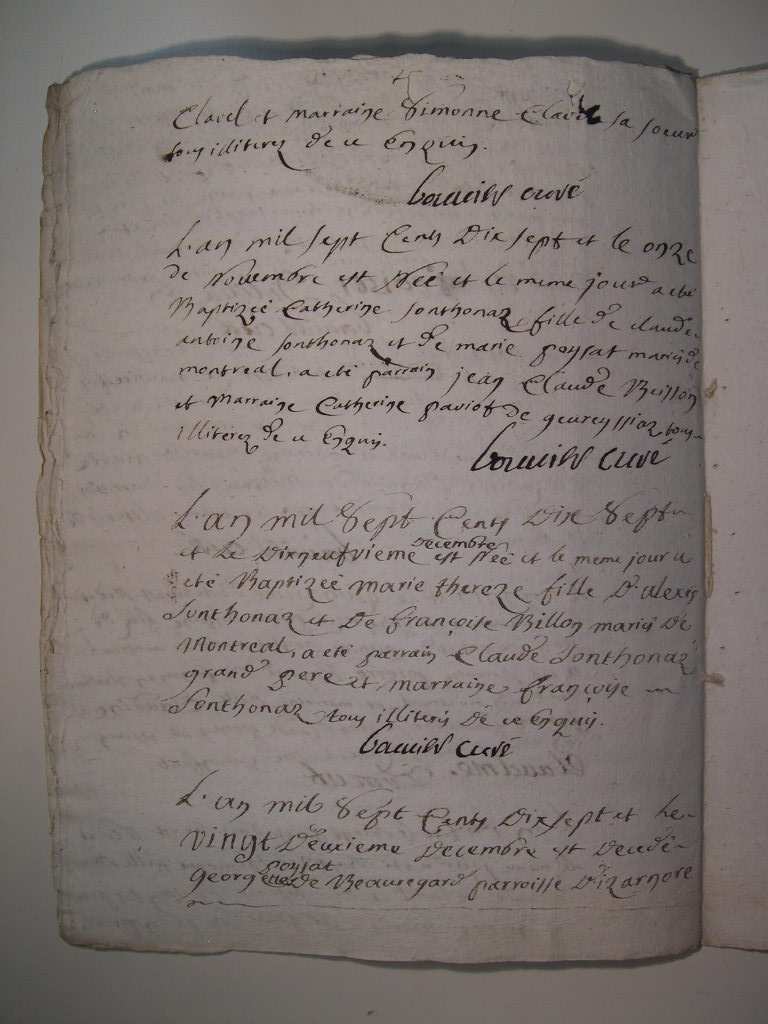 Clavel et marraine Simonne Clavel sa soeur
tous illiterez de ce Enquis.
curé
L'an mil sept Cents Dix sept et le onze
de Novembre est Née et le meme jour a eté
Baptizeé Catherine Sonthonaz fille de claude
antoine Sonthonaz et de marie poysat mariés de
montreal, a eté parrain jean Claude Buisson
et Marraine Catherine paviot de geureyssiaz tous
illiterez de ce Enquis.
curé
L'an mil Sept Cents Dix Sept
et Le Dixneufvieme Decembre est Neé et le meme jour a
eté Baptizeé marie thereze fille D'alexis
Sonthonaz et De françoise Billon mariés De
Montreal, a eté parrain Claude Sonthonaz
grand pere et marraine françoise
Sonthonaz tous illiteris De ce Enquis.
curé
L'an mil Sept Cents Dix sept et Le
vingt Deuxieme Decembre est Decedé
george poysat de Beauregard parroisse D'izarnore